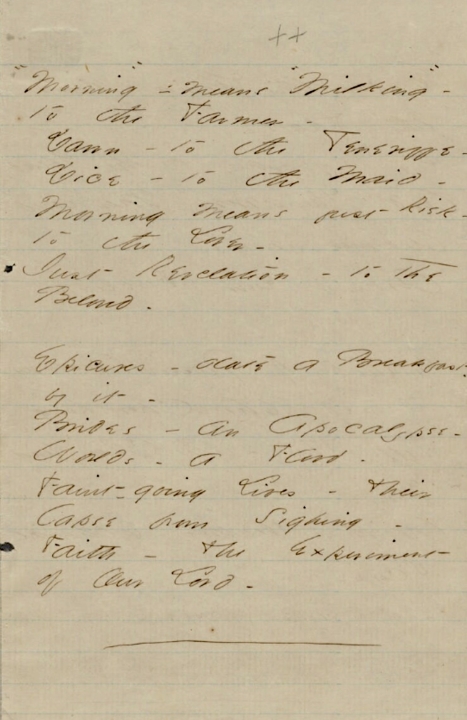 ++
"Morning" - means "Milking" -
to the Farmer -
Dawn - to the Teneriffe -
Dice - to the Maid -
Morning means just Risk -
to the Lover -
Just Revelation - to the
Beloved -
Epicures - date a Breakfast
by it -
Brides - an Apocalypse -
Worlds - a Flood -
Faint-going Lives - their
Lapse from Sighing -
Faith - the Experiment
of Our Lord -